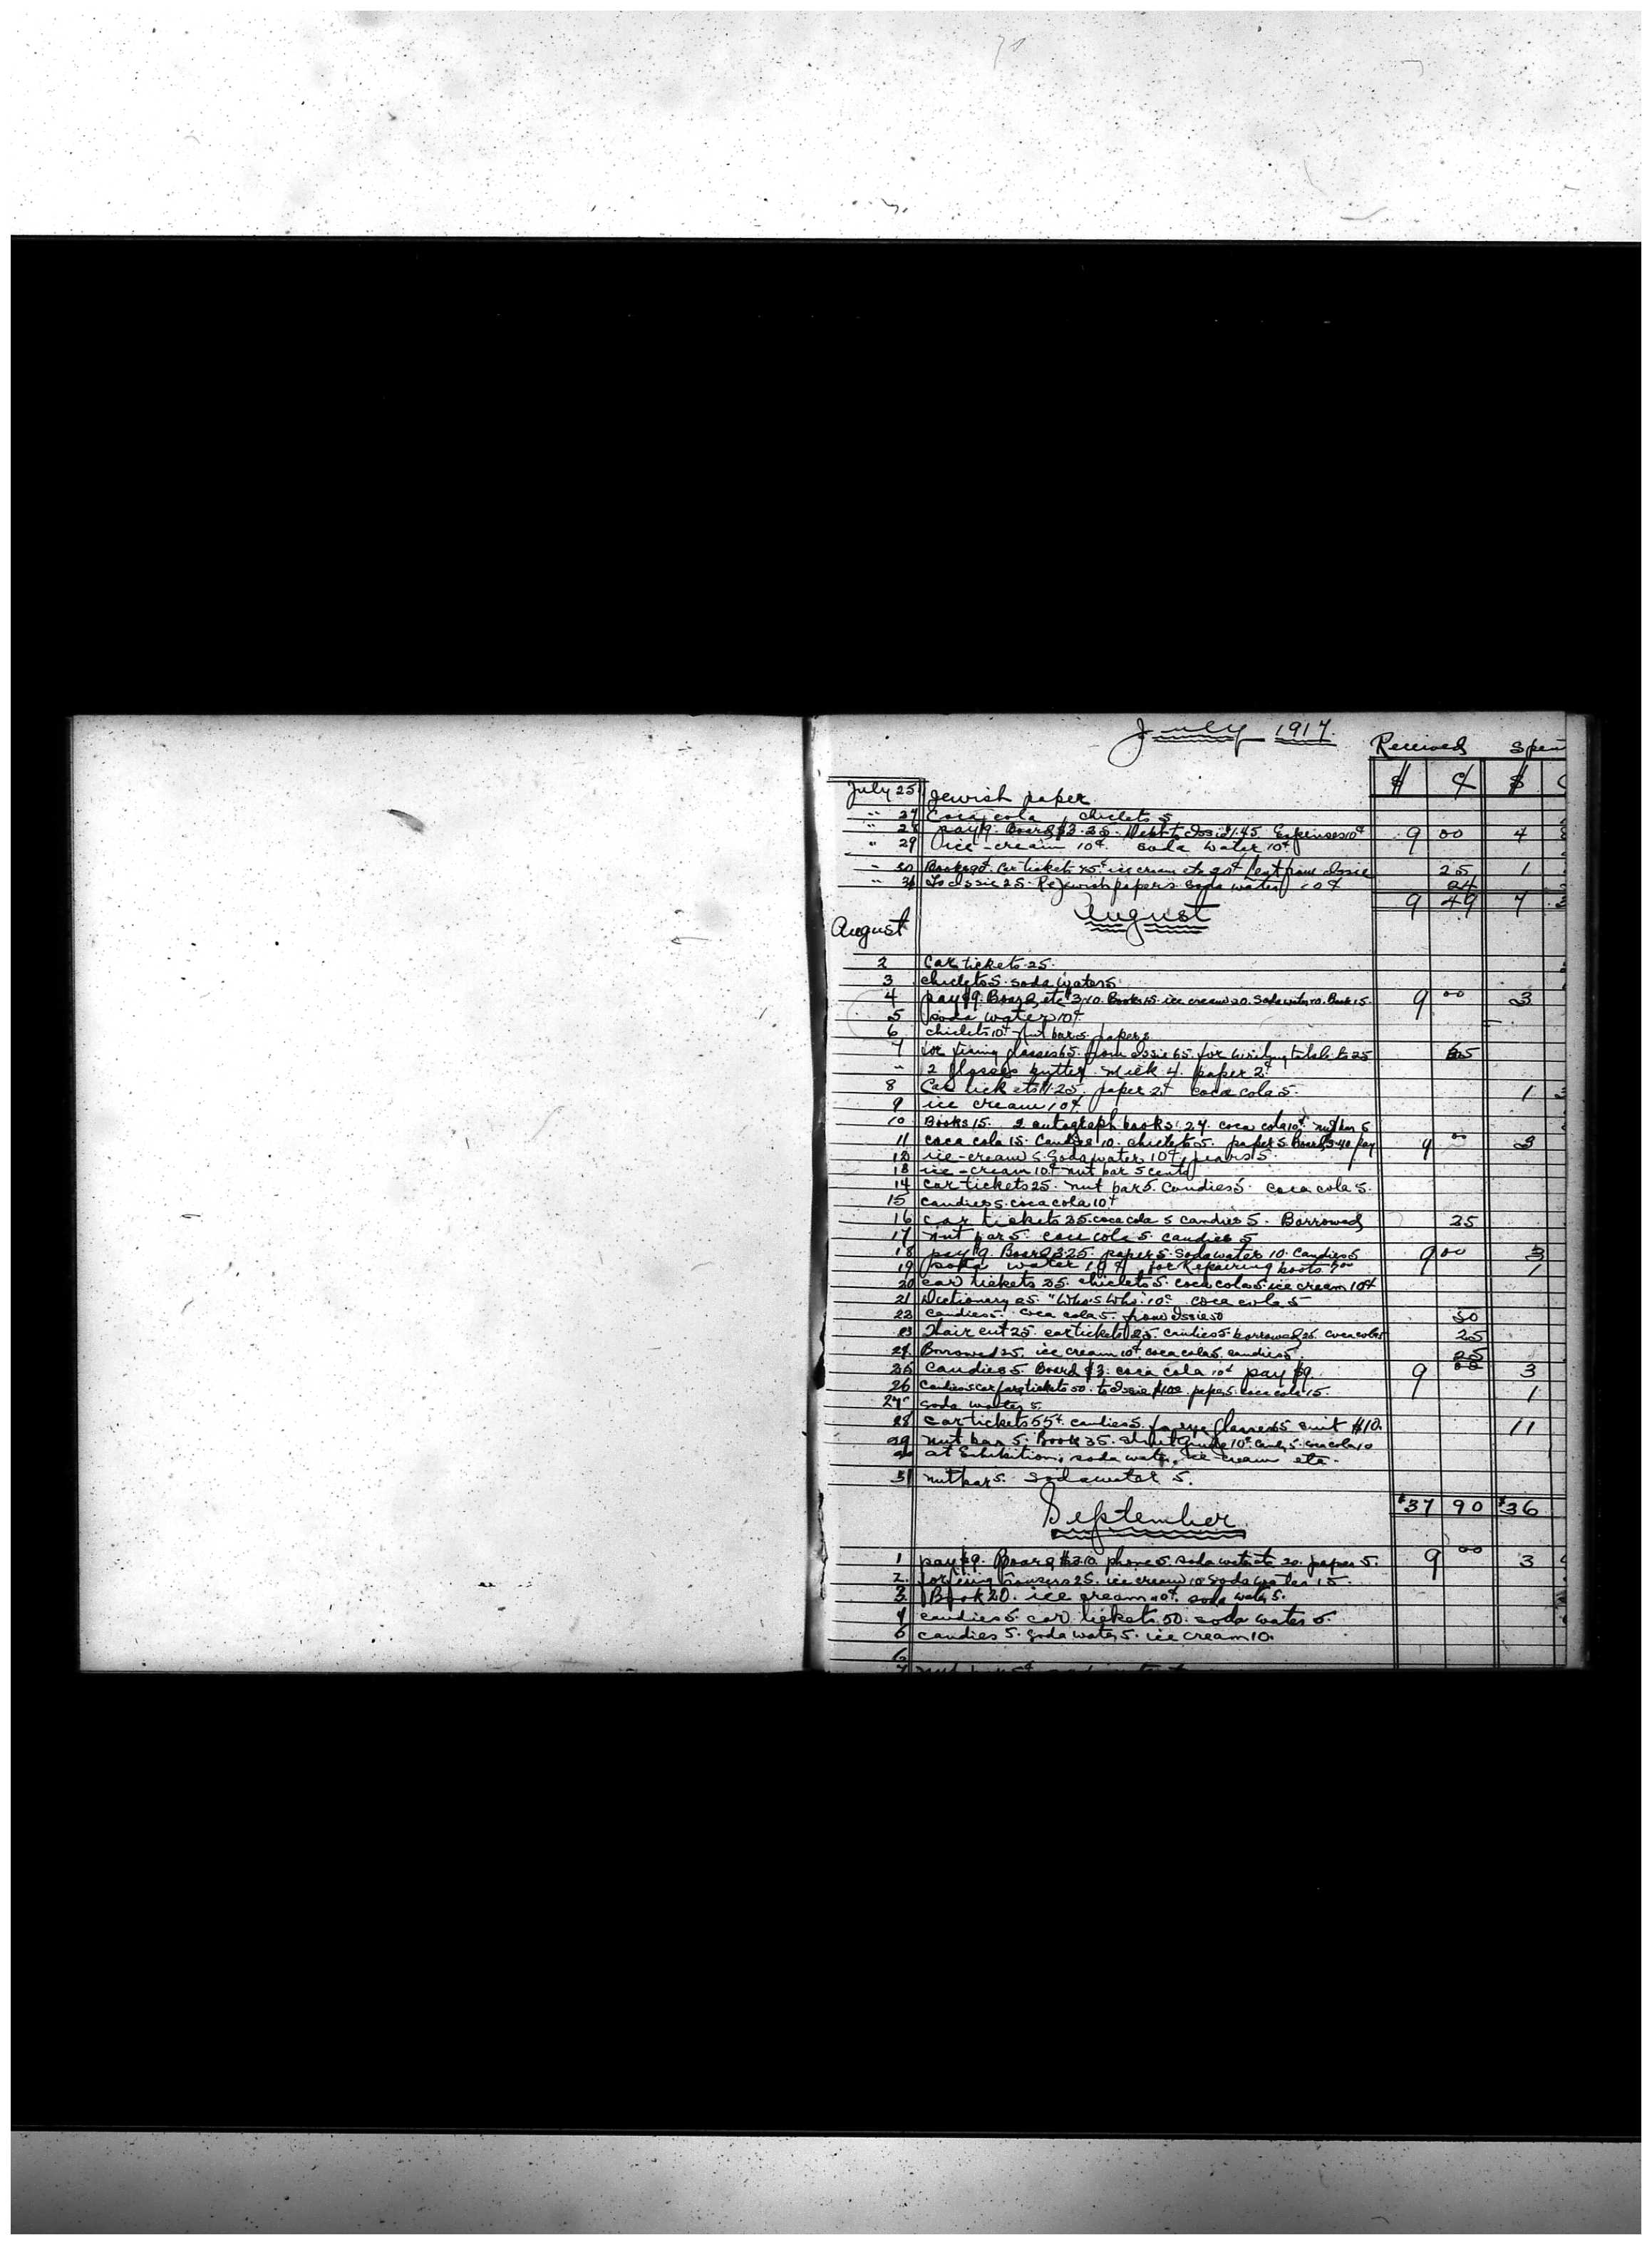 July 1917.
Received Spen
$ ¢ $ C
July 25 Jewish paper
" 27 Coca cola, chiclets 5
" 28 pay $9. Board $3.25. Debt to Issie $1.45. Expenses 10¢ 9 00 4
" 29 ice-cream 10¢. soda water 10¢
" 30 car tickets ice cream etc from Issie 25 1
" 31 To Issie 25. Jewish paper 5. soda water 10¢ 24
9 49 7
August
August
2 Car tickets 25.
3 chiclets 5. soda water 5.
4 pay $9. Board, etc $3.10. Books 15. ice cream 20. Soda water 10. Book 15. 9 00 3
5 soda water 10¢
6 chiclets 10¢ nut bar 5. paper
7 for fixing glasses 65. from Issie 65. for 25 65
" 2 glasses butter milk 4. paper 2¢
8 Car tickets 1.25, paper 2¢ coca cola 5. 1
9 ice cream 10¢
10 Books 15. 2 autograph books. 24. coca cola 10¢ nut bar 5
11 coca cola 15. Candies 10. chiclets 5. paper 5. Board 3.40 pay 9 00 3
12 ice-cream 5. Soda water 10¢, pears 5.
13 ice-cream 10¢ nut bar 5 cents
14 car tickets 25. nut bar 5. Candies 5. coca cola 5.
15 candies 5. coca cola 10¢
16 car tickets 25. coca cola 5 candies 5. Borrowed 25
17 nut bar 5. coca cola 5. candies 5
18 pay $9. Board 3.25. paper 5. Soda water 10. Candies 5 9 00 3
19 soda water 10¢, for Repairing boots 1
20 car tickets 25. chiclets 5. coca cola 5. ice cream 10¢
21 Dictionary 25. "Who's Who" 10¢ coca cola 5
22 candies 5. Coca cola 5. from Issie 50 50
23 Hair cut 25. car tickets 25. candies 5. borrowed 25. coca cola 5 25
24 Borrowed 25. ice cream 10¢. coca cola 5. candies 5. 25
25 candies 5. Board $3. coca cola 10¢ pay $9. 9 00 3
26 Candies 5 car fare tickets 50. to Issie $1.00. paper 5. coca cola 15. 1
27 soda water 5.
28 car tickets 55¢. candies 5. for eye glasses 65 suit $10. 11
29 nut bar 5. Book 35. Street Guide 10¢. 5. coca cola 10
30 at Exhibition, soda water, ice cream etc.
31 nut bar 5. soda water 5.
$37 90 $36
September
1 pay $9. Board $3.10. phone 5. soda water etc 20. paper 5. 9 00 3
2. for fixing trousers 25. ice cream 10 soda water 15.
3. Book 20. ice cream 10¢. soda water 5.
4 candies 5. car tickets 50. soda water 5
5 candies 5. soda water 5. ice cream 10.
6
7